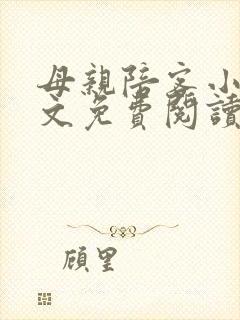 母親陪客小
文免費閱讀
顧里